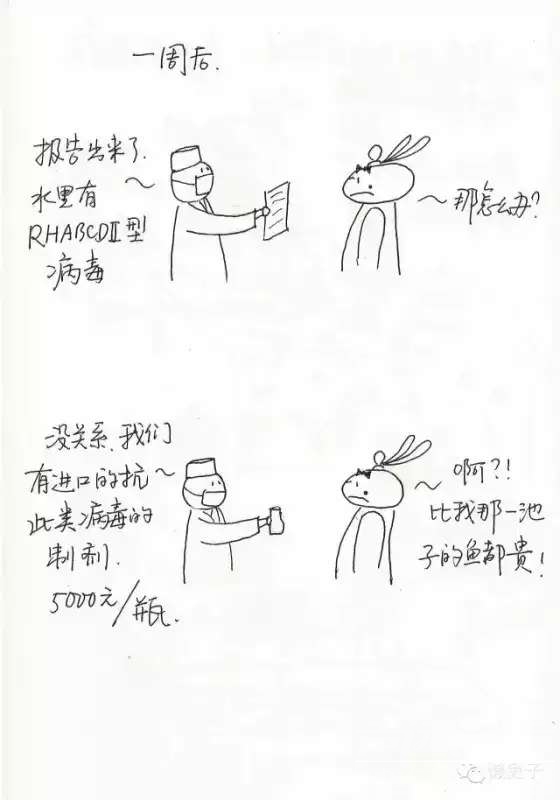 一周后.
报告出来了.
水里有
RHABCDII型
病毒
那怎么办?
没关系.我们
有进口的抗
此类病毒的
制剂.
5000元/瓶.
啊?!
比我那一池
子的鱼都贵!